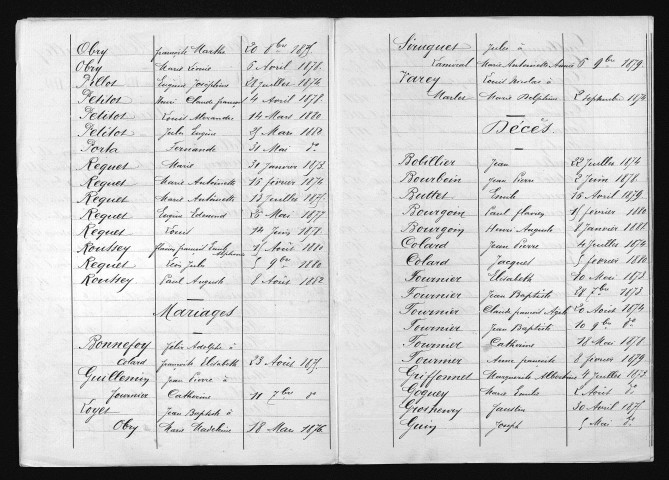 Obry françois Marthe 20 8bre 1875.
Obry Marie Léonie 6 Avril 1876.
Pillot Eugène Joséphine 28 Juillet 1874
Petitot Henri Claude françois 4 Avril 1878.
Petitot Louis Alexandre 14 Mars 1880
Petitot Jules Eugène 25 Mars 1880
Porta Fernande 31 Mai do
Reguet Marie 31 Janvier 1873.
Reguet Marie Antoinette 15 février 1874
Reguet Marie Antoinette 13 Juillet 1875.
Reguet Eugène Edmond 25 Mai 1877
Reguet Louis 14 Juin 1878.
Roussey Août 1880
Reguet Léon Jules 5 9bre 1880
Roussey Paul Auguste 8 Août 1882
Mariages
Bonnefoy Jules Adolphe à
Colard françoise Elisabeth 23 Août 1875.
Guillemin Jean Pierre à
fournier Catherine 11 7bre do
Loyet Jean Baptiste à
Obry Marie Madeleine 18 Mars 1876.
Siruguet Jules à
Marie Antoinette 6 9bre 1879.
Varey Louis Nicolas à
Marlet Marie Delphine 2 Septembre 1874.
Décès
Bobillier Jean 22 Juillet 1874
Bourbein Jean Pierre 2 Juin 1878.
Buttet Emile 16 Avril 1879.
Bourgoin Paul flavien février 1880
Bourgoin Henri Auguste 8 Janvier 1881.
Colard Jean Pierre 4 Juillet 1874
Colard Jacques 5 février 1880.
Fournier Elisabeth 20 Mai 1873.
Fournier Jean Baptiste 28 7bre 1873
Fournier Claude françois 20 Août 1874
Fournier Jean Baptiste 10 9bre do
Fournier Catherine 12 Mai 1878.
Fournier Anne françoise 8 février 1879
Griffonnet Marguerite Albertine 4 Juillet 1873.
Goguey Marie Emilie 2 Août do
Grosherry faustin 30 Avril 1875.
Guin Joseph 5 Mai do